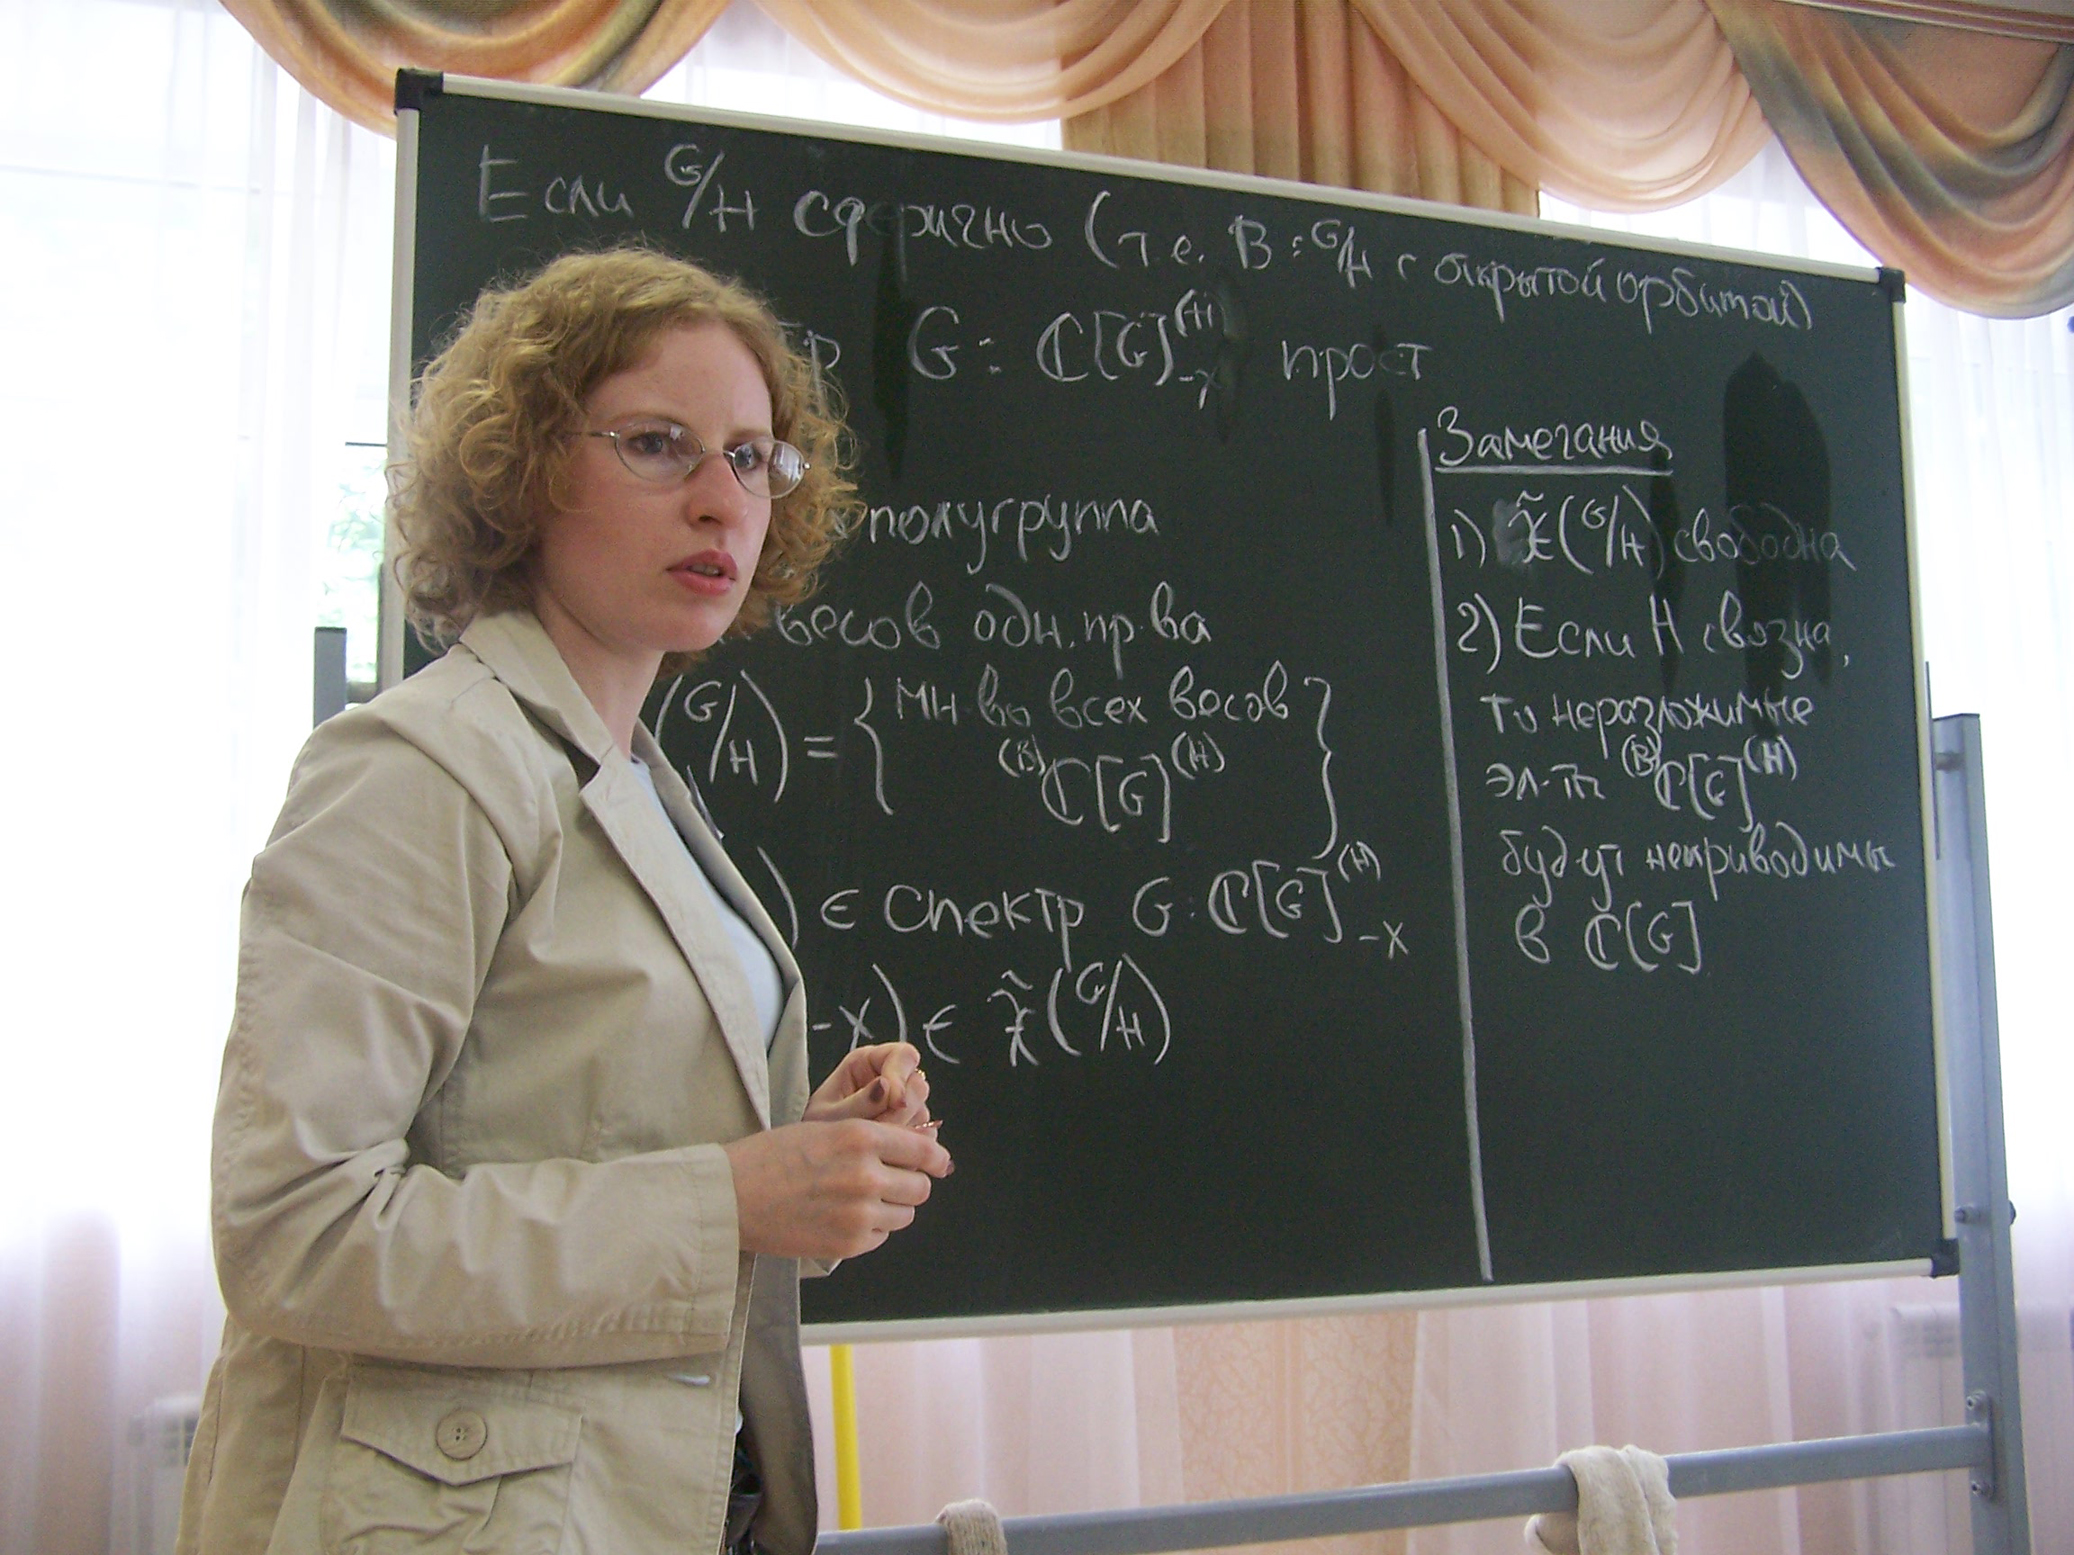 Если G/H сферично (т.е. B : G/H с открытой орбитой)
G : ℂ[G]^{(H)}_{-χ} прост
полугруппа
весов одн. пр-ва
(G/H) = { мн-во всех весов
^{(B)}ℂ[G]^{(H)} }
) ∈ спектр G : ℂ[G]^{(H)}_{-χ}
-χ) ∈ X̃(G/H)
Замечания
1) X̃(G/H) свободна
2) Если H связна,
то неразложимые
эл-ты ^{(B)}ℂ[G]^{(H)}
будут неприводимы
в ℂ[G]